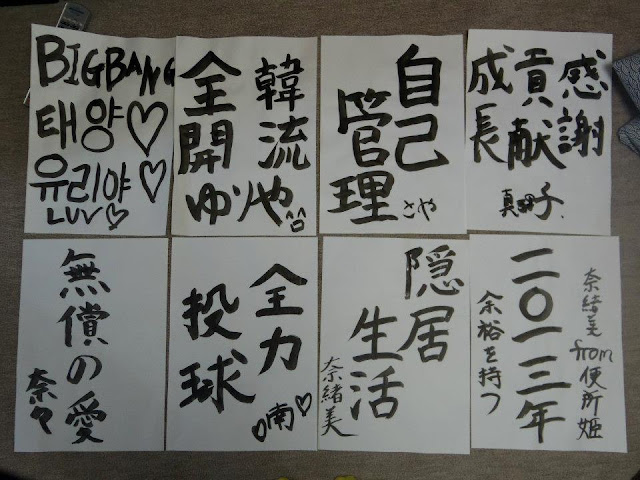 BIGBANG
태양♡
유리야♡
LUV♡
韓流
全開
ゆりや
自己
管理
さや
感謝
貢献
成長
無償の愛
奈々
全力
投球
♡南♡
隠居
生活
奈緒美
奈緒美from便所姫
二〇一三年
余裕を持つ